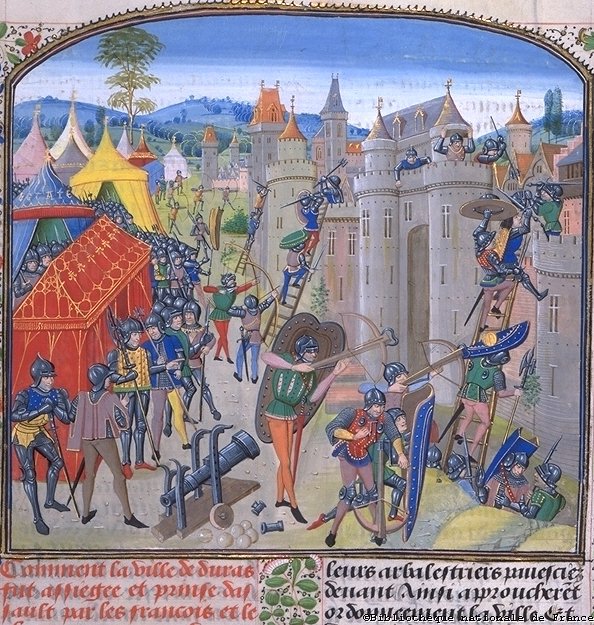 Comment la ville de duras
fut assiegee et prinse das
sault par les francois et le
leurs arbalestriers pauesciez
deuant Ainsi aproucheret
ordonneement la ville Et
©Bibliothèque nationale de France